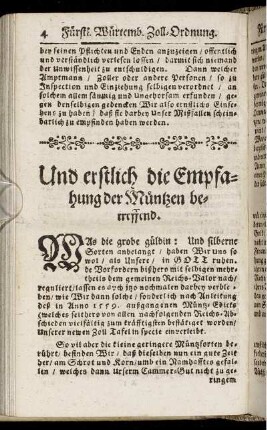 4 Fürstl. Würtemb. Zoll-Ordnung.
bey seinen Pflichten und Enden anzuzeigen / offentlich
und verständlich verlesen lassen / darmit sich niemand
der Unwissenheit zu entschuldigen. Dann welcher
Amptmann / Zoller oder andere Personen / so zu
Inspection und Einziehung selbigen verordnet / an
solchem allem säumig und Ungehorsam erfunden / ge-
gen denselbigen gedencken Wir also ernstlichs Einse-
hens zu haben / daß sie darbey Unser Mißfallen schein-
barlich zu empfinden haben werden.
Und erstlich die Empfa-
hung der Müntzen be-
treffend.
WAs die grobe güldin: Und silberne
Sorten anbelangt / haben Wir uns so
wol / als Unsere / in GOTT ruhen-
de Vorfordern bißhero mit selbigen mehr-
theils dem gemeinen Reichs-Valor nach /
regulirt / lassen es auch itzo nochmaten darbey verblei-
ben / wie Wir dann solche / sonderlich nach Anleitung
deß in Anno 1559. außgangenen Müntz-Edicts
(welches seithero von allen nachfolgenden Reichs-Ab-
schieden vielfältig zum kräfftigsten bestätiget worden)
Unserer newen Zoll Tafel in specie einverleibt.
So vil aber die kleine geringere Müntzsorten be-
rührt / befinden Wir / daß dieselben nun ein gute Zeit
her / am Schrot und Korn / umb ein Namhafftes gefal-
len / welches dann Unserm Cammer-Gut nicht zu ge-
ringem